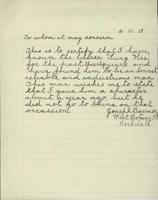 6.11.18
To whom it may concern
This is to certify that I have
known the bearer Tung Hee
for the past four years and
have found him to be an honest
reliable, and industrious man
This man wishes me to state
that I gave him a character
about a year ago but he
did not go to China on that
occassion
Joseph
West Botany St
Rockdale